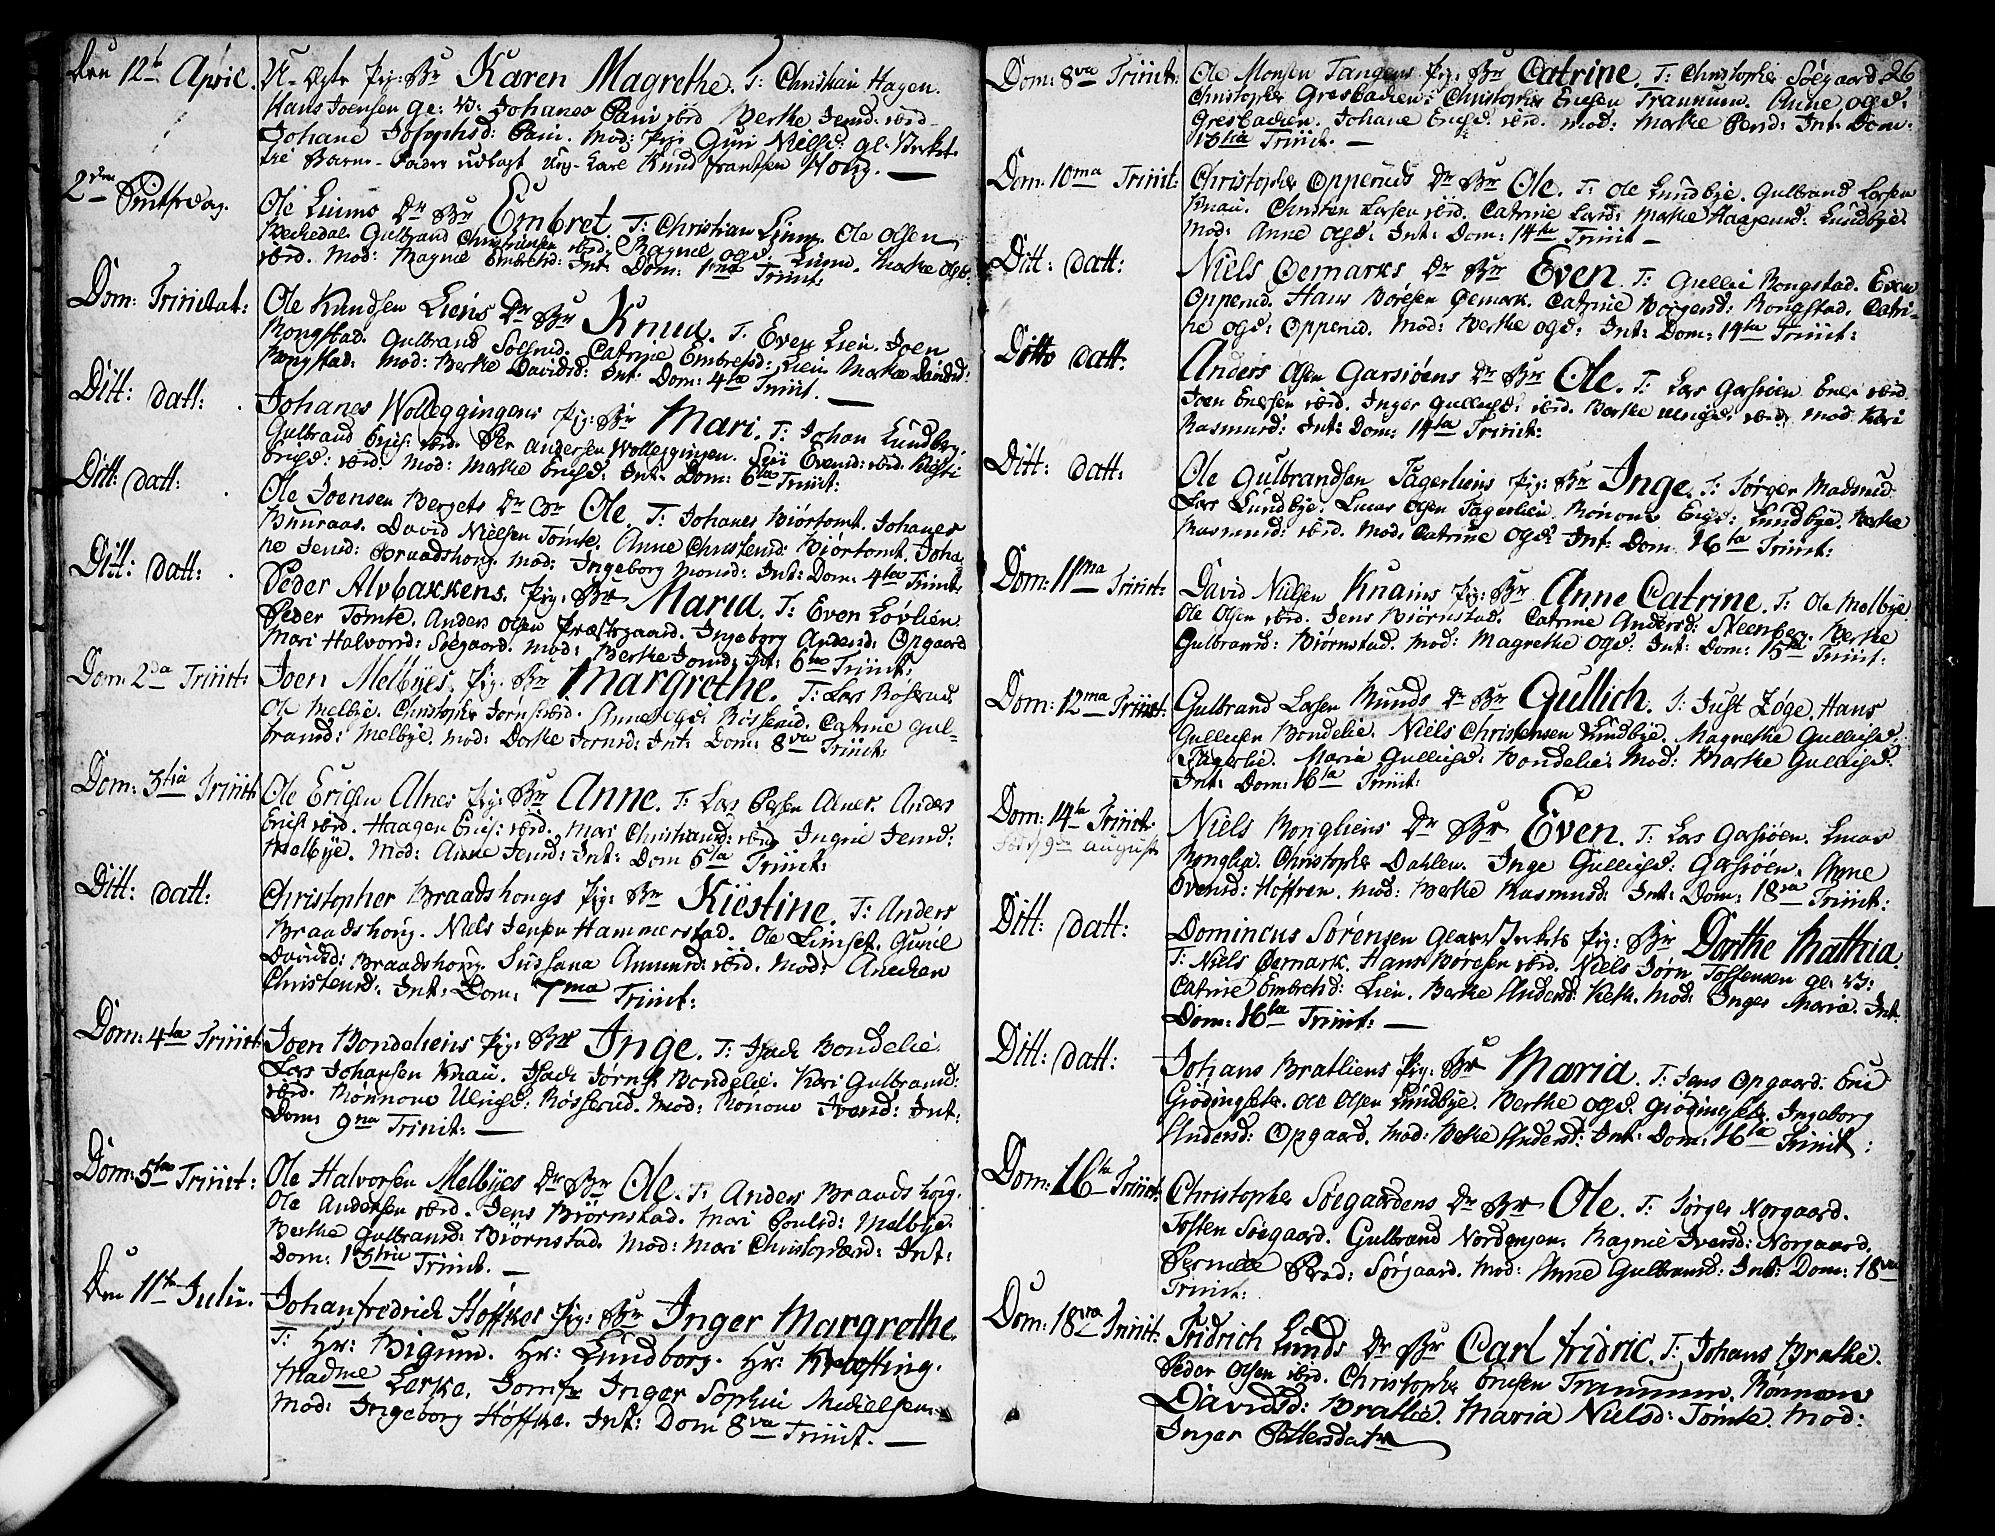 Den 12te April. U-Ægte Pig: Br Karen Magrethe. T: Christian Hagen.
Hans Joensen Johanes Berthe Jensd:
Johane Josephsd: Mod: Pig: Guri Nielsd:
Barne-Fader udlagt Ung-Karl Knud Frantsen
2den Pintsedag. Ole Liums Dr Br Embret. T: Christian Lium. Ole Olsen
Bechedal. Gulbrand Christiansen ibid. Ragnil Ogsd: Lium. Marthe Ogsd:
ibid. Mod: Ragnil Embretsd: Int: Dom: 1ma Trinit:
Dom: Trinitat: Ole Knudsen Liens Dr Br Knud. T: Even Lien. Joen
Rongstad. Gulbrand Catrine Embretsd: Lien Marthe Davidsd:
Rongstad: Mod: Berthe Davidsd: Int: Dom: 4ta Trinit. —
Ditt: datt: Johanes Wolleggingens Pig: Br Mari. T: Johan Lundberg.
Gulbrand Erics: ibid. Per Andersen Wolleggingen. Siri Evensd: ibid.
Ericsd: ibid. Mod: Marthe Ericsd: Int: Dom: 6ta Trinit:
Ditt: datt: Ole Joensen Bergets Dr Br Ole. T: Johanes Biørtomt. Johanes
Buuraas. David Nielsen Tømte. Anne Christensd: Biørtomt. Joha-
ne Jensd: Braadshoug. Mod: Ingeborg Monsd: Int: Dom: 4ta Trinit:
Ditt: datt: Peder Alvbakkens. Pig: Br Maria. T: Even Løvlien.
Peder Tømte. Anders Olsen Præstegaard. Ingeborg Andersd: Opgaard
Mari Halvorsd: Søegaard. Mod: Berthe Jonsd: Int: 6ta Trinit:
Dom: 2da Trinit: Joen Melbyes. Pig: Br Margrethe. T: Lars Røsserud.
Ole Melbye. Christopher Jørns: ibid. Anne Ogsd: Røsserud. Catrine Gul-
bransd: Melbye. Mod: Dorthe Jørnsd: Int: Dom: 8va Trinit:
Dom: 3tia Trinit: Ole Ericsen Alnes Pig: Br Anne. T: Lars Persen Alnes. Anders
Erics: ibid. Haagen Erics: ibid. Mari Christiansd: ibid. Ingrie Jensd:
Melbye. Mod: Anne Jensd: Int: Dom 6ta Trinit:
Ditt: datt: Christopher Braadshougs Pig: Br Kiestine. T: Anders
Braadshoug. Niels Jensen Hammerstad. Ole Limset. Gunil
Davidsd: Braadshoug. Sussana Amunsd: ibid. Mod: Anechen
Christensd: Int: Dom: 7ma Trinit:
Dom: 4ta Trinit: Joen Bondeliens Pig: Br Inge. T: Isach Bondelie.
Lars Johansen Knai. Isach Jørns: Bondelie. Kari Gulbransd:
ibid. Rønnove Ulricsd: Røsserud. Mod: Rønove Iversd: Int:
Dom: 9na Trinit: —
Dom: 5ta Trinit: Ole Halvorsen Melbyes Dr Br Ole. T: Anders Braadshoug.
Ole Andersen ibid. Jens Biørnstad. Mari Poulsd: Melbye.
Berthe Gulbransd: Biørnstad. Mod: Mari Christophersd: Int:
Dom: 13tia Trinit. —
Den 11te Julii. Johanfredrich Høffkes Pig: Br Inger Margrethe.
T: Hr: Bigum. Hr: Lundborg. Hr: Krefting.
Madme Lerke. Jomfr Inger Sophia Michelsen.
Mod: Ingeborg Høffke. Int: Dom 8va Trinit. —
Dom: 8va Trinit: Ole Monsen Tangens Pig: Br Catrine. T: Christopher Søegaard. 26
Christopher Gresbachen. Christopher Ericsen Trannum. Anne Ogsd:
Gresbachen. Johane Ericsd: ibid. Mod: Marthe Persd: Int: Dom:
13tia Trinit: —
Dom: 10ma Trinit: Christopher Opperuds Dr Br Ole. T: Ole Lundbye. Gulbrand Larsen
Knai. Christen Larsen ibid. Catrine Larsd: Marthe Haagensd: Lundbye.
Mod: Anne Ogsd: Int: Dom: 14ta Trinit —
Ditt: datt: Niels Øemarks Dr Br Even. T: Gullic Rongstad. Even
Opperud. Hans Børesen Øemark. Catrine Børgersd: Rongstad. Catri-
ne Ogsd: Opperud. Mod: Berthe Ogsd: Int: Dom: 14ta Trinit:
Ditto datt: Anders Olsen Garsiøens Dr Br Ole. T: Lars Garsiøen. Eric ibid.
Joen Ericsen ibid. Inger Gullicsd: ibid. Berthe Ulricsd: ibid. Mod Kari
Rasmusd: Int: Dom: 14ta Trinit:
Ditt: datt: Ole Gulbrandsen Fagerliens Pig: Br Inge. T: Jørger Madsrud.
Lars Lundbye. Lucas Olsen Fagerlien. Rønove Ericsd: Lundbye. Berthe
Rasmusd: ibid. Mod. Catrine Ogsd: Int: Dom: 16ta Trinit:
Dom: 11ma Trinit: David Nielsen Knains Pig: Br Anne Catrine. T: Ole Melbye.
Ole Olsen ibid. Jens Biørnstad. Catrine Andersd: Steenberg. Berthe
Gulbransd: Biørnstad. Mod: Magrethe Ogsd: Int: Dom: 15ta Trinit:
Dom: 12ma Trinit: Gulbrand Larsen Runds Dr Br Gullich. T: Just Zøge. Hans
Gullicsen Bondelie. Niels Christensen Lundbye. Magrethe Gullicsd:
Fagerlie. Maria Gullicsd: Bondelie: Mod: Marthe Gullicsd:
Int: Dom: 16ta Trinit:
Dom: 14ta Trinit. Niels Rongliens Dr Br Even. T: Lars Garsiøen. Lucas
født 9de august Ronglie. Christopher Dahlen. Inge Gullicsd: Garsiøen. Anne
Evensd: Høffren. Mod: Berthe Rasmusd: Int: Dom: 18va Trinit:
Ditt: datt: Domincus Sørensen Pig: Br Dorthe Mathia.
T: Niels Øemark. Hans Børesen ibid. Niels Jørn Tostensen gl: V:
Catrine Embretsd: Lien. Berthe Andersd: Mod: Inger Marie. Int:
Dom: 16ta Trinit: —
Ditt: datt: Johans Bratliens Pig: Br Maria. T: Jens Opgaard. Eric
Giødingsete. Ole Olsen Lundbye. Berthe Ogsd: Giødingsete. Ingeborg
Andersd: Opgaard. Mod: Berthe Andersd: Int: Dom: 16ta Trinit:
Dom: 16ta Trinit: Christopher Søegaardens Dr Br Ole. T: Jørger Norgaard.
Tosten Søegaard. Gulbrand Nordengen. Ragnil Iversd: Norgaard.
Pernille Prsd: Sørgaard. Mod: Anne Gulbransd: Int: Dom: 18va
Trinit:
Dom: 18va Trinit: Fridrich Lunds Dr Br Carl Fridric. T: Johans Brathe.
Peder Olsen ibid. Christopher Ericsen Trannum. Rønnove
Davidsd: Bratlie. Maria Nielsd: Tømte. Mod:
Inger Pettersdatr